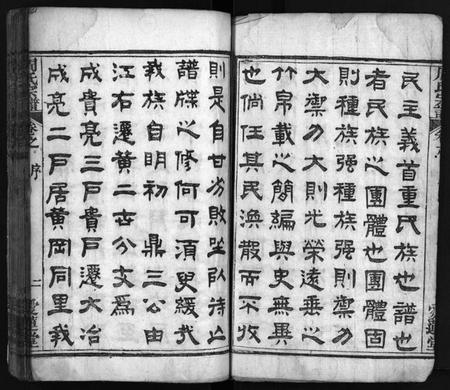 民主義首重民族也譜也
者民族之團體也團體固
則種族強種族強則禦力
大禦力大則光榮遠垂之
竹帛載之簡編與史無異
也倘任其民渙散而不收
則是自甘劣敗坐以待亡
譜牒之修何可須臾緩哉
我族自明初 鼎三公由
江右遷黃二世分支為
成貴亮三戶貴戶遷大冶
成亮二戶居黃岡同里我
周氏宗譜 卷之 序 二 愛蓮堂